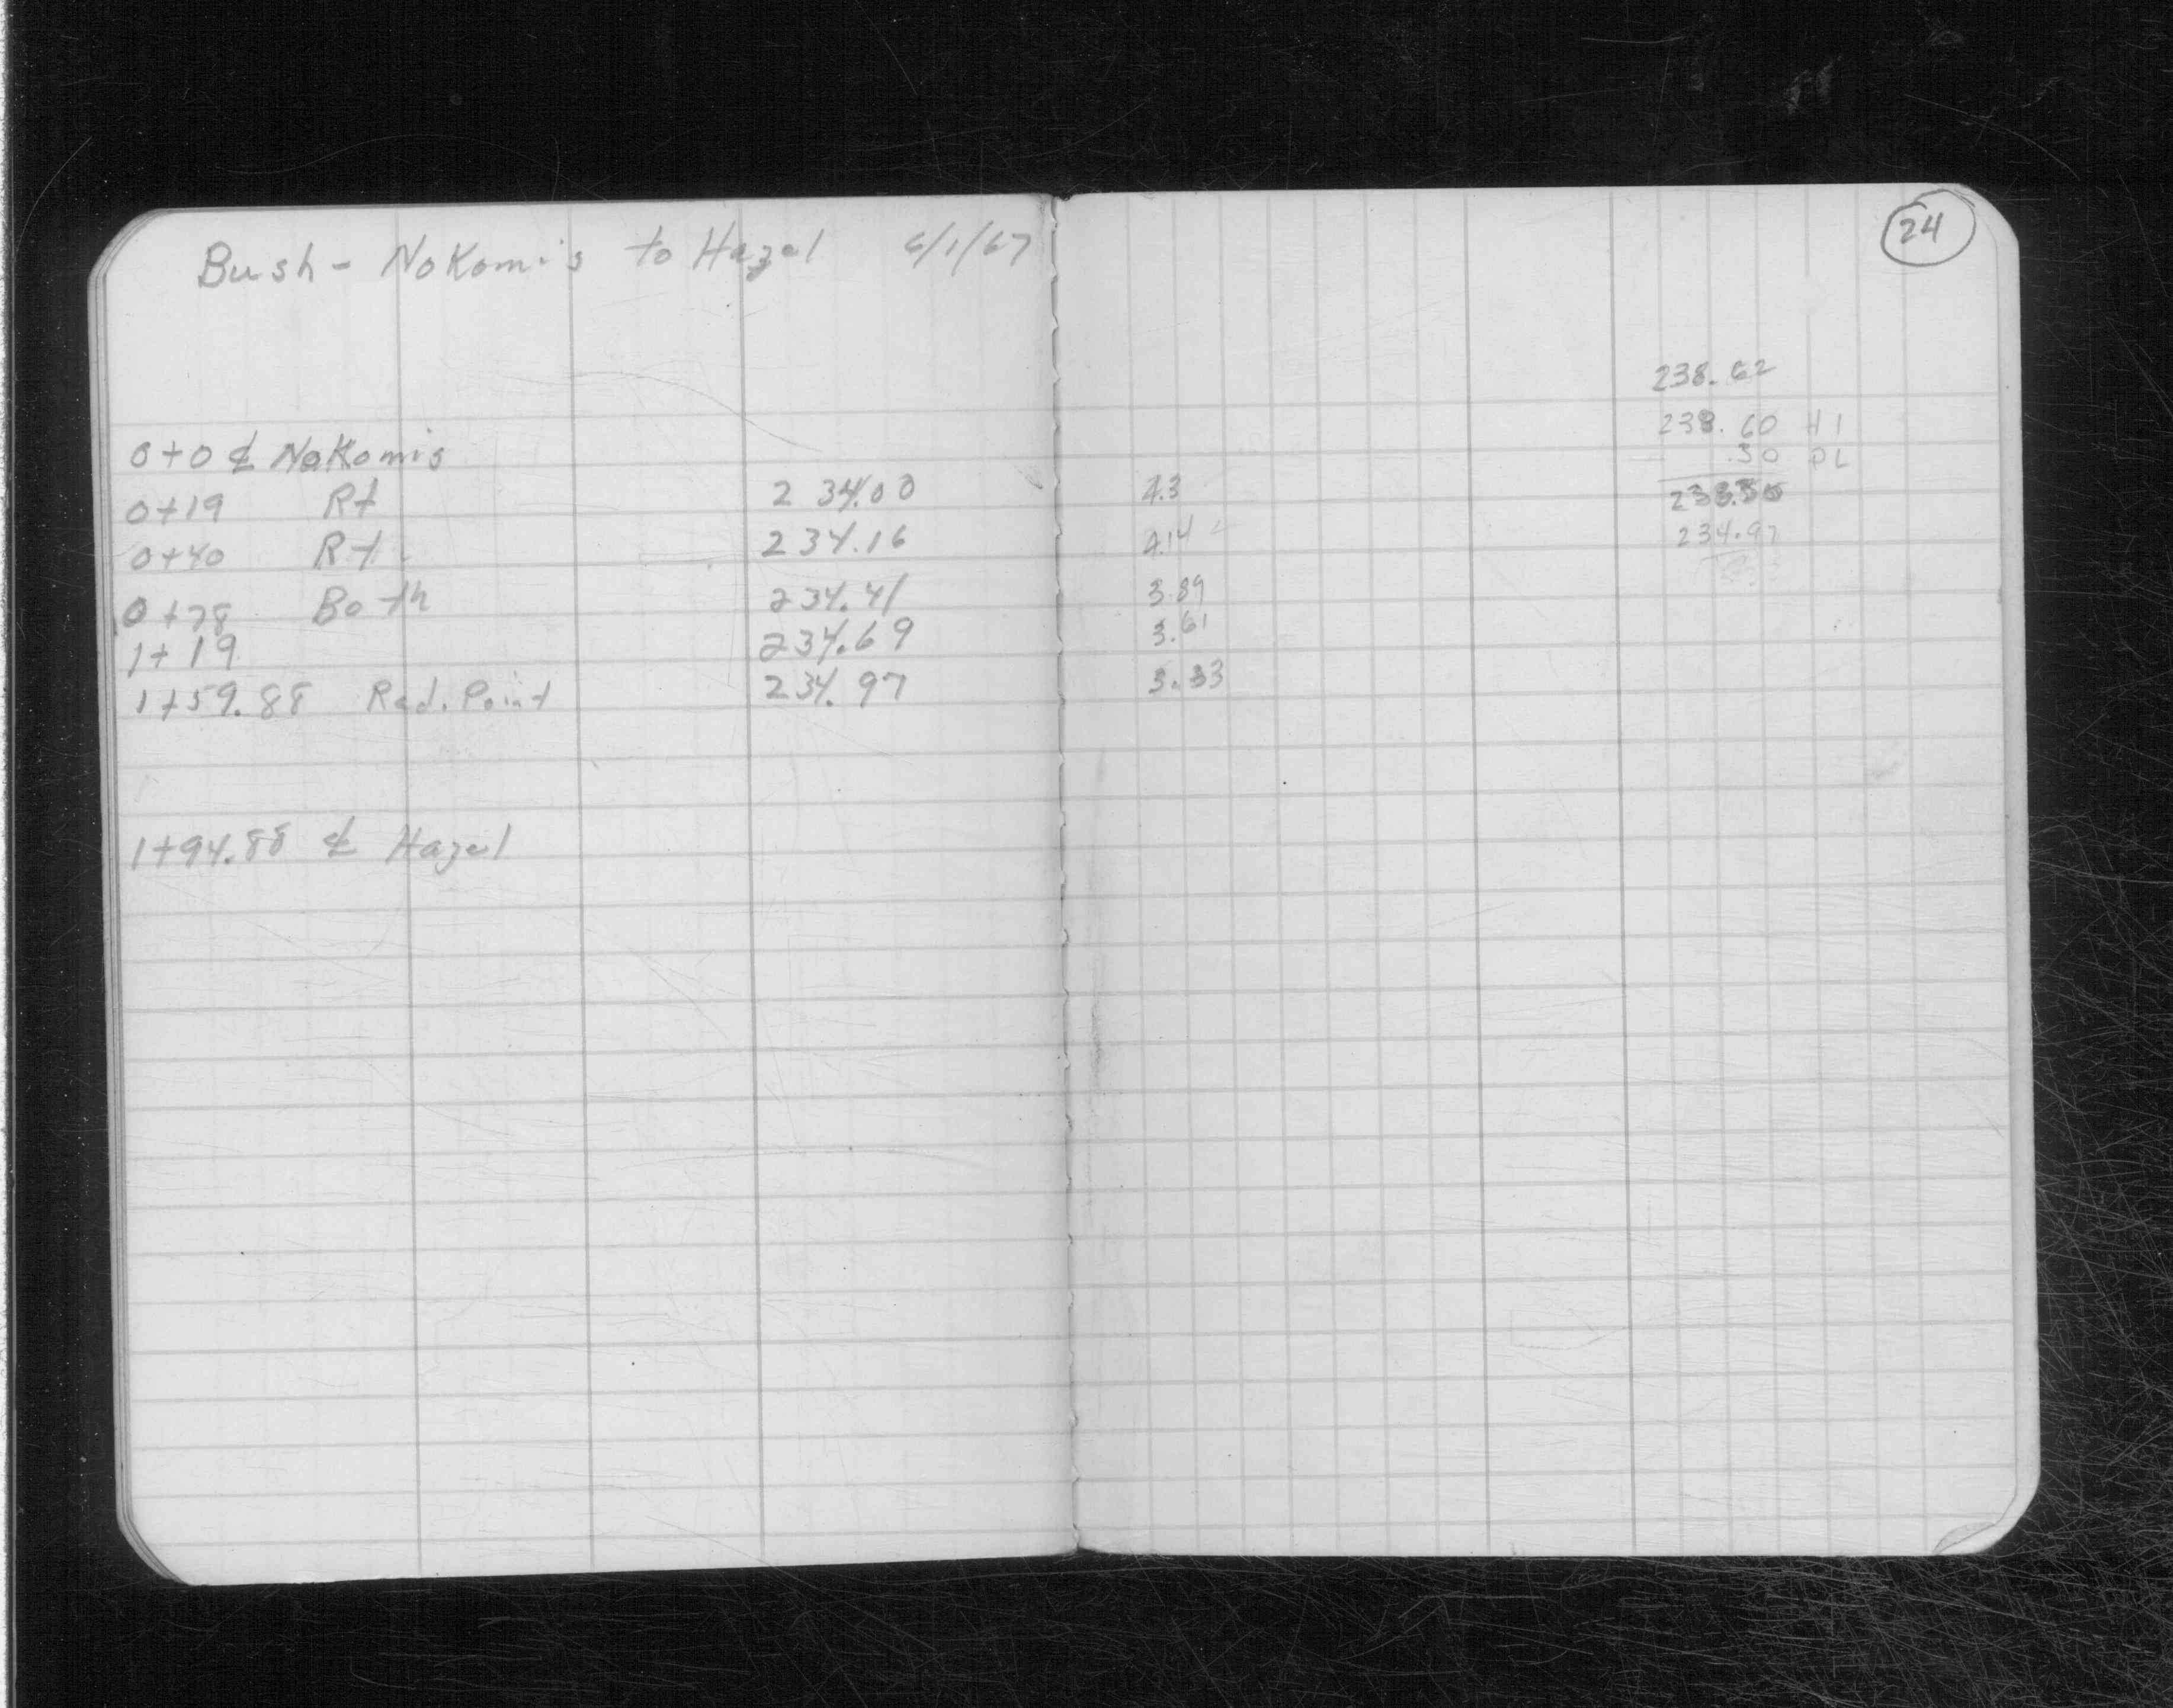 Bush - Nokomis to Hazel 6/1/67
24
238.62
238.60 HI
.30 PL
0+0 ℄ Nokomis
0+19 Rt 234.00 4.3
0+40 Rt. 234.16 4.14
234.97
0+78 Both 234.41 3.89
1+19 234.69 3.61
1+59.88 Rad. Point 234.97 3.33
1+94.88 ℄ Hazel